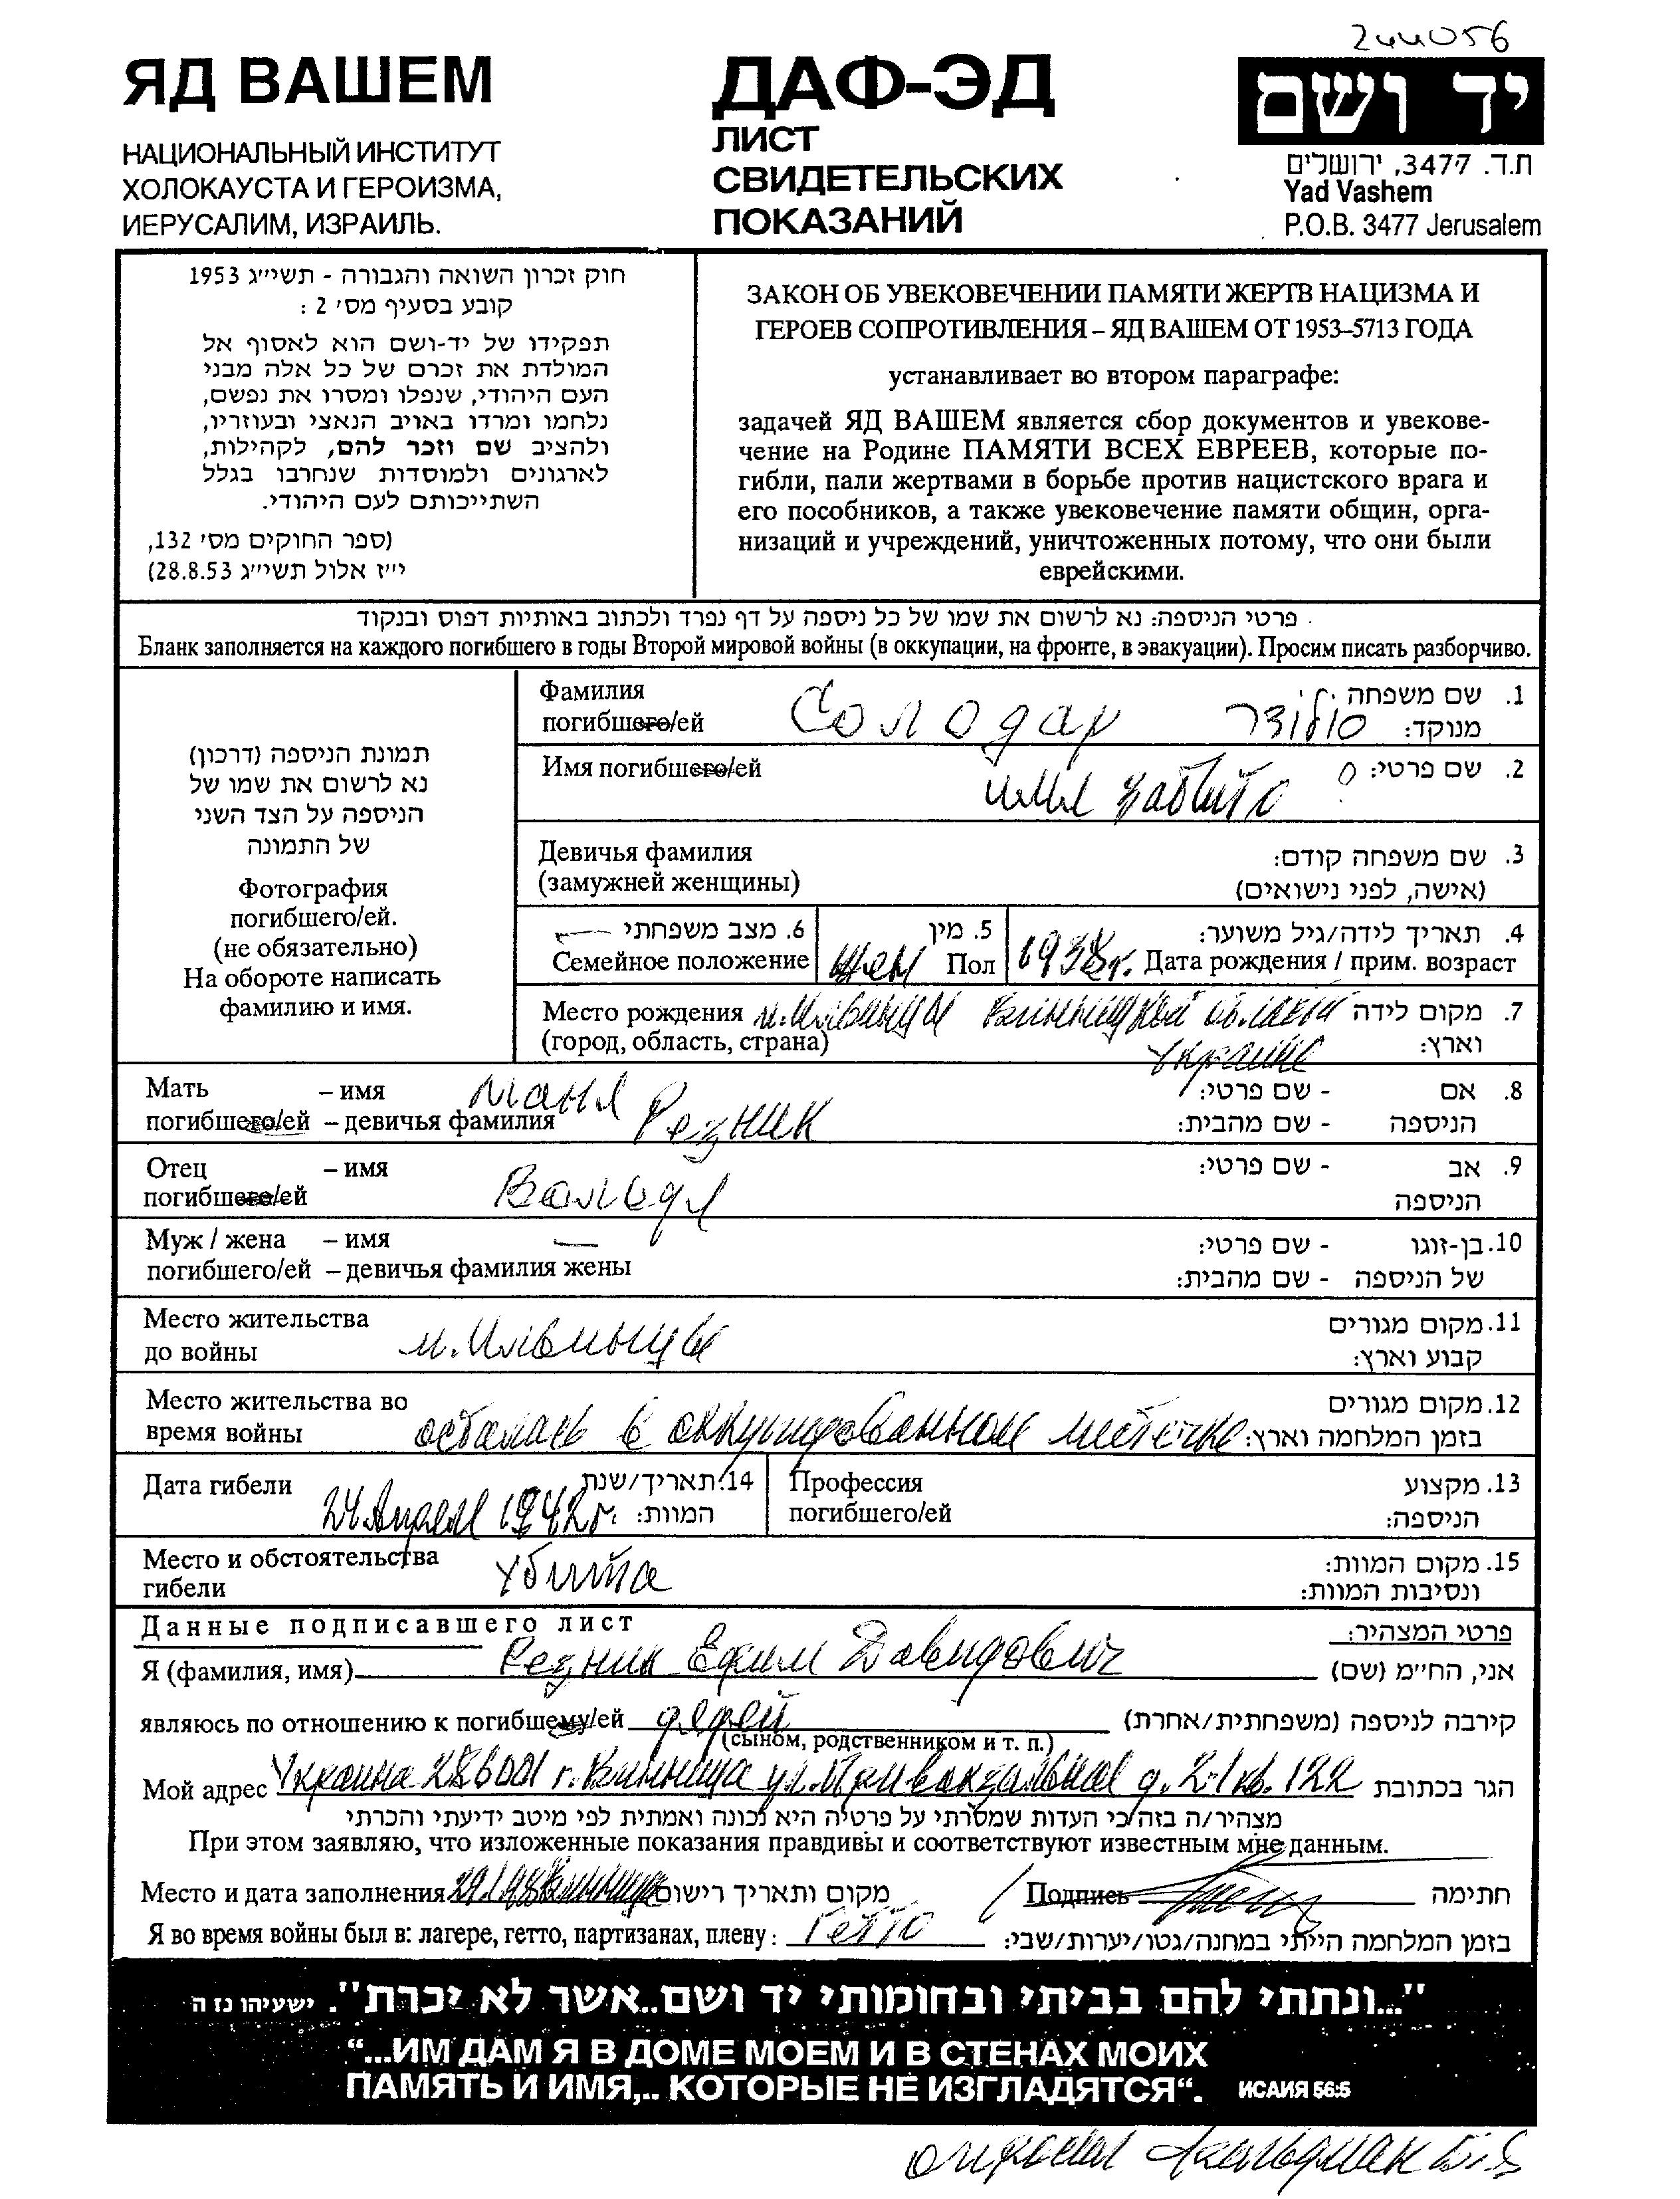 244056
ЯД ВАШЕМ
НАЦИОНАЛЬНЫЙ ИНСТИТУТ
ХОЛОКАУСТА И ГЕРОИЗМА,
ИЕРУСАЛИМ, ИЗРАИЛЬ.
ДАФ-ЭД
ЛИСТ
СВИДЕТЕЛЬСКИХ
ПОКАЗАНИЙ
יד ושם
ת.ד. 3477, ירושלים
Yad Vashem
P.O.B. 3477 Jerusalem
חוק זכרון השואה והגבורה - תשי״ג 1953
קובע בסעיף מס׳ 2 :
תפקידו של יד-ושם הוא לאסוף אל
המולדת את זכרם של כל אלה מבני
העם היהודי, שנפלו ומסרו את נפשם,
נלחמו ומרדו באויב הנאצי ובעוזריו,
ולהציב שם וזכר להם, לקהילות,
לארגונים ולמוסדות שנחרבו בגלל
השתייכותם לעם היהודי.
(ספר החוקים מס׳ 132,
י״ז אלול תשי״ג 28.8.53)
ЗАКОН ОБ УВЕКОВЕЧЕНИИ ПАМЯТИ ЖЕРТВ НАЦИЗМА И
ГЕРОЕВ СОПРОТИВЛЕНИЯ – ЯД ВАШЕМ ОТ 1953–5713 ГОДА
устанавливает во втором параграфе:
задачей ЯД ВАШЕМ является сбор документов и увекове-
чение на Родине ПАМЯТИ ВСЕХ ЕВРЕЕВ, которые по-
гибли, пали жертвами в борьбе против нацистского врага и
его пособников, а также увековечение памяти общин, орга-
низаций и учреждений, уничтоженных потому, что они были
еврейскими.
פרטי הניספה: נא לרשום את שמו של כל ניספה על דף נפרד ולכתוב באותיות דפוס ובנקוד
Бланк заполняется на каждого погибшего в годы Второй мировой войны (в оккупации, на фронте, в эвакуации). Просим писать разборчиво.
תמונת הניספה (דרכון)
נא לרשום את שמו של
הניספה על הצד השני
של התמונה
Фотография
погибшего/ей.
(не обязательно)
На обороте написать
фамилию и имя.
Фамилия
погибшего/ей Солодар סולודר
1. שם משפחה
מנוקד:
Имя погибшего/ей имя забыто ? 2. שם פרטי:
Девичья фамилия
(замужней женщины)
3. שם משפחה קודם:
(אישה, לפני נישואים)
6. מצב משפחתי —
Семейное положение
5. מין
жен Пол
4. תאריך לידה/גיל משוער:
1938г. Дата рождения / прим. возраст
Место рождения м. Ильинцы Винницкой области 7. מקום לידה
(город, область, страна) Украина וארץ:
Мать – имя Маня 8. אם - שם פרטי:
погибшего/ей – девичья фамилия Резник הניספה - שם מהבית:
Отец – имя Володя 9. אב - שם פרטי:
погибшего/ей הניספה
Муж / жена – имя — 10. בן-זוגו - שם פרטי:
погибшего/ей – девичья фамилия жены של הניספה - שם מהבית:
Место жительства 11. מקום מגורים
до войны м. Ильинцы קבוע וארץ:
Место жительства во 12. מקום מגורים
время войны осталась в оккупированном местечке בזמן המלחמה וארץ:
Дата гибели 24 Апреля 1942 г. 14. תאריך/שנת
המוות:
Профессия 13. מקצוע
погибшего/ей הניספה:
Место и обстоятельства 15. מקום המוות:
гибели убита ונסיבות המוות:
Данные подписавшего лист פרטי המצהיר:
Я (фамилия, имя) Резник Ефим Давидович אני, החי״מ (שם)
являюсь по отношению к погибшему/ей дядей קירבה לניספה (משפחתית/אחרת)
(сыном, родственником и т. п.)
Мой адрес Украина 286001 г. Винница ул. Привокзальная д. 2-1 кв. 122 הגר בכתובת
מצהיר/ה בזה כי העדות שמסרתי על פרטיה היא נכונה ואמתית לפי מיטב ידיעתי והכרתי
При этом заявляю, что изложенные показания правдивы и соответствуют известным мне данным.
Место и дата заполнения Винница מקום ותאריך רישום Подпись חתימה
Я во время войны был в: лагере, гетто, партизанах, плену: Гетто בזמן המלחמה הייתי במחנה/גטו/יערות/שבי:
"...ונתתי להם בביתי ובחומותי יד ושם..אשר לא יכרת". ישעיהו נו ה
“...ИМ ДАМ Я В ДОМЕ МОЕМ И В СТЕНАХ МОИХ
ПАМЯТЬ И ИМЯ,.. КОТОРЫЕ НЕ ИЗГЛАДЯТСЯ“. ИСАИЯ 56:5